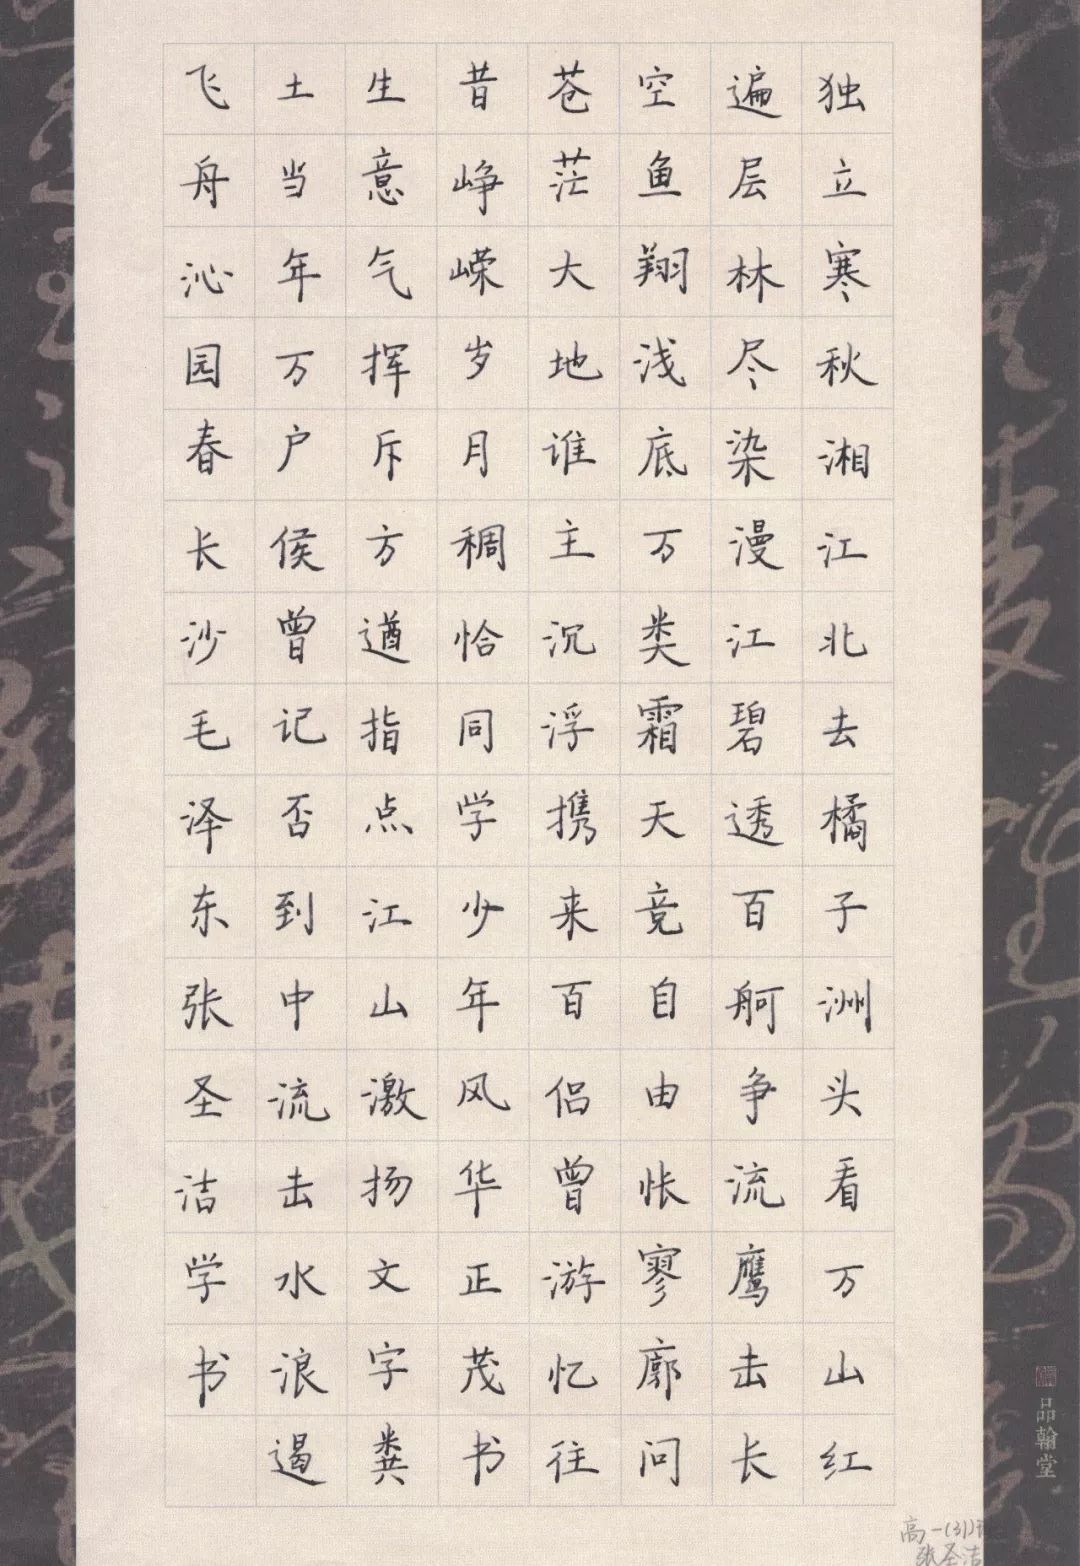 独立寒秋湘江北去橘子洲头看万山红
遍层林尽染漫江碧透百舸争流鹰击长
空鱼翔浅底万类霜天竞自由怅寥廓问
苍茫大地谁主沉浮携来百侣曾游忆往
昔峥嵘岁月稠恰同学少年风华正茂书
生意气挥斥方遒指点江山激扬文字粪
土当年万户侯曾记否到中流击水浪遏
飞舟沁园春长沙毛泽东张圣洁学书
品翰堂
高一(31)
张圣洁